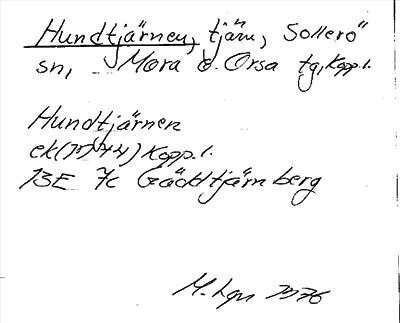 Hundtjärnen, tjärn, Sollerö
sn, Mora o. Orsa tg, Kopp.l.
Hundtjärnen
ek(1944) Kopp.l.
13E 7c Gäddtjärnberg
M. Lgn 1976